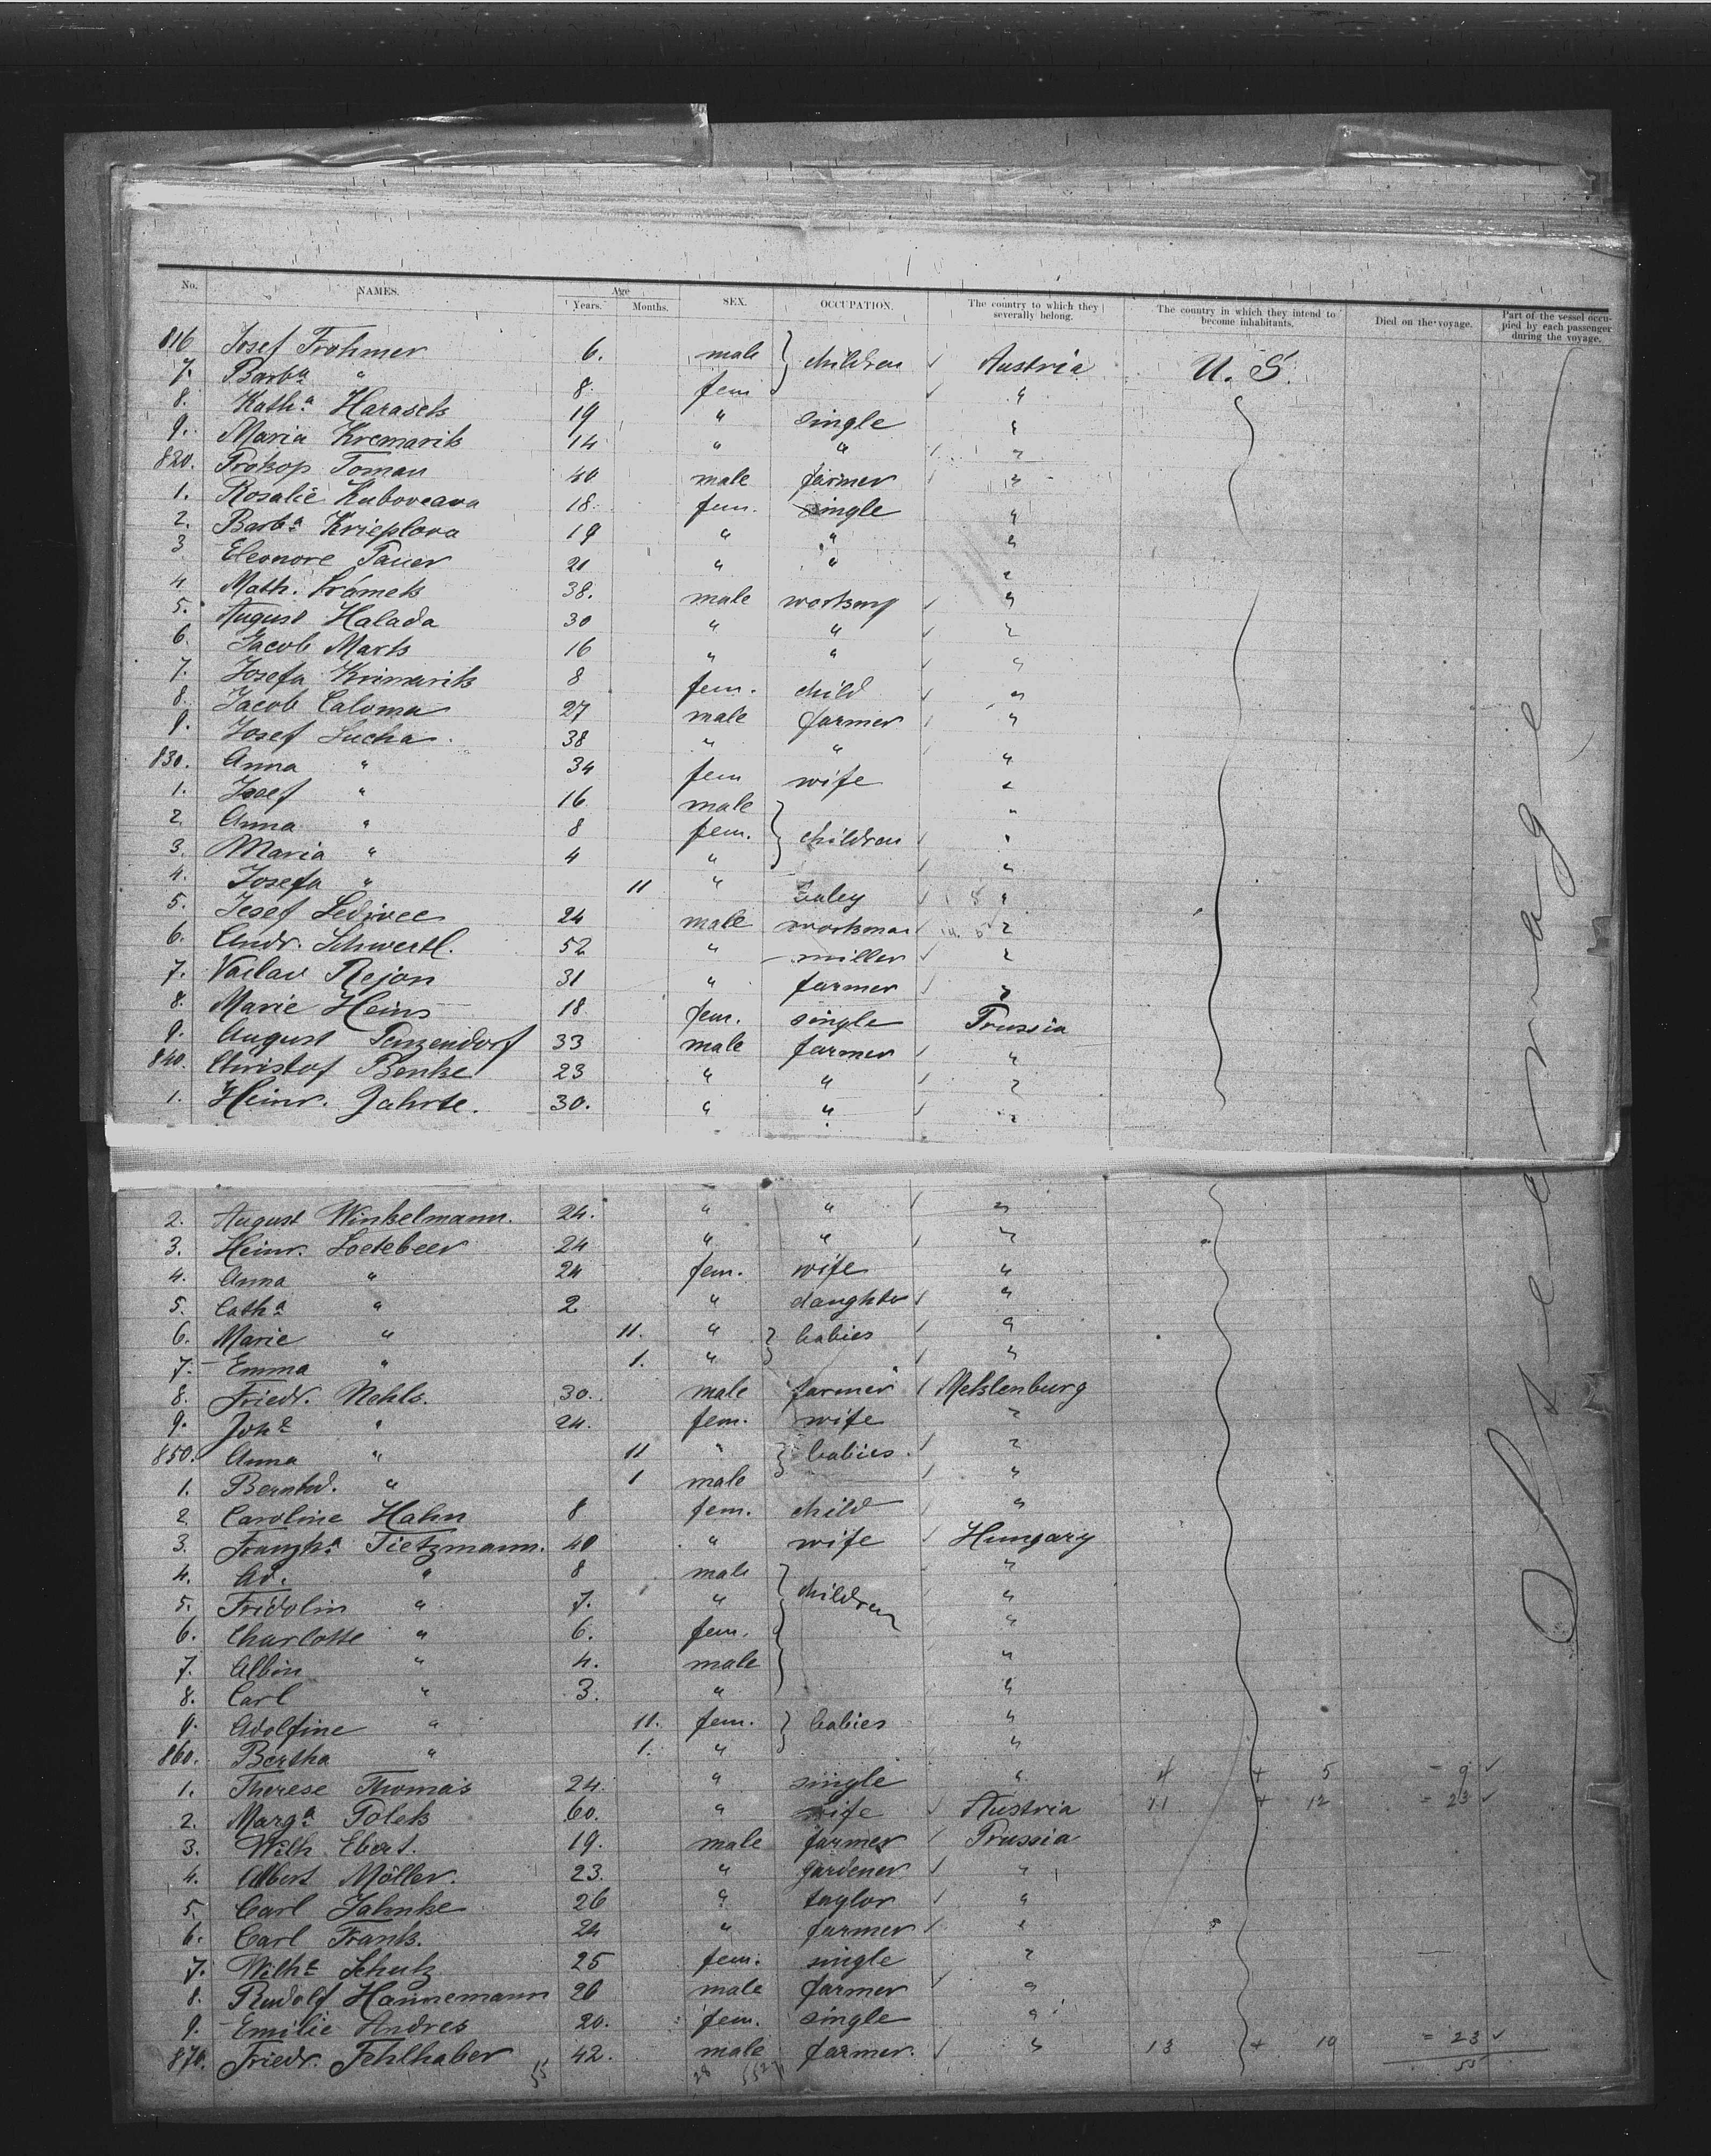 No. NAMES. Age Years. Months. SEX. OCCUPATION. The country to which they severally belong. The country in which they intend to become inhabitants. Died on the voyage. Part of the vessel occupied by each passenger during the voyage.
816 Josef Frohmer 6. male } children ✓ Austria U. S.
7. Barba " 8. fem ✓ "
8. Katha Harasek 19 " single "
9. Maria Kremarik 14 " " "
820. Prokop Toman 40 male farmer "
1. Rosalie 18. fem. single "
2. Barba Krieplova 19 " " "
3 Eleonore Pauer 21 " " "
4. Math. 38. male ✓ "
5. August Halada 30 " " ✓ "
6. Jacob Marks 16 " " ✓ "
7. Josefa Krimarik 8 fem. child ✓ "
8. Jacob Caloma 27 male farmer "
9. Josef Sucha 38 " " "
830. Anna " 34 fem wife "
1. Josef " 16. male "
2. Anna " 8 fem. } children ✓ "
3. Maria " 4 " ✓ "
4. Josefa " 11 " baby ✓ "
5. Josef Sedivec 24 male workman "
6. Andr. Schwertl. 52 " miller ✓ "
7. Vaclav Rejon 31 " farmer "
8. Marie Heins 18 fem. single Prussia
9. August Penzendorf 33 male farmer ✓ "
840. Christof Benke 23 " " ✓ "
1. Heinr. Jahrte. 30. " " ✓ "
2. August Winkelmann. 24. " " ✓ "
3. Heinr. Soetebeer 24 " " ✓ "
4. Anna " 24 fem. wife "
5. Catha " 2 " daughter ✓ "
6. Marie " 11. " } babies ✓ "
7. Emma " 1. " ✓ "
8. Friedr. Nehls. 30. male farmer ✓ Meklenburg
9. Joha " 24. fem. wife "
850. Anna " 11 " } babies ✓ "
1. Bernhd. " 1 male ✓ "
2 Caroline Hahn 8 fem. child ✓ "
3. Franzka Tietzmann. 40 " wife ✓ Hungary
4. Ad. " 8 male "
5. Fridolin " 7. " children "
6. Charlotte " 6. fem. "
7. Albin " 4. male "
8. Carl " 3. " "
9. Adolfine " 11. fem. } babies "
860. Bertha " 1. " "
1. Therese Thomas 24. " single " 4 + 5 = 9 ✓
2. Marga Polek 60. " wife ✓ Austria 11 + 12 = 23 ✓
3. Wilh Ebert. 19. male farmer ✓ Prussia
4. Albert Möller. 23. " gardener ✓ "
5. Carl Jahnke 26 " taylor ✓ "
6. Carl Frank. 24 " farmer ✓ "
7. Wilhe Schulz 25 fem. single "
8. Rudolf Hannemann 26 male farmer ✓ "
9. Emilie Andres 20. fem. single "
870. Friedr. Fehlhaber 42. male farmer. ✓ " 13 + 10 = 23 ✓
55 28 55
Steerage